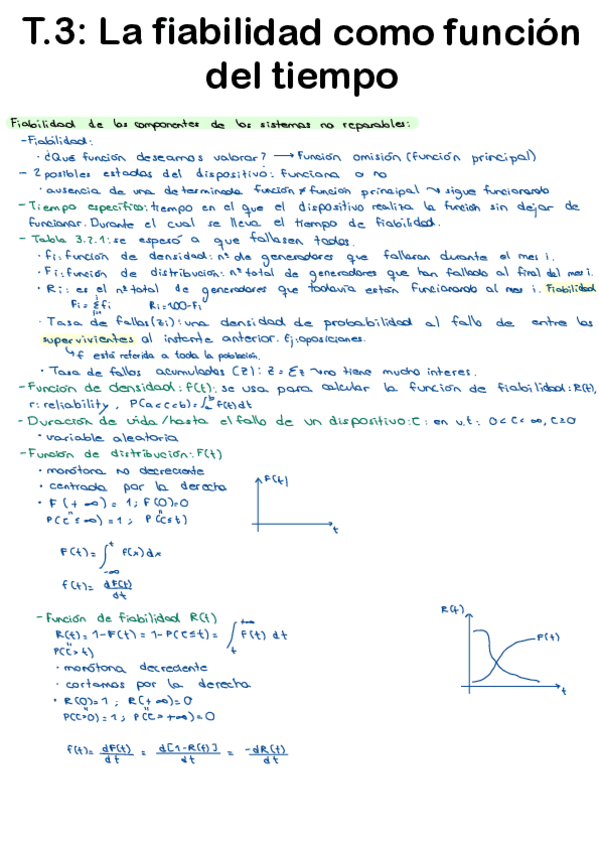 T.3: La fiabilidad como función
del tiempo
Fiabilidad de los componentes de los sistemas no reparables:
- Fiabilidad:
· ¿Qué función deseamos valorar? → Función omisión (función principal)
- 2 posibles estados del dispositivo: Funciona o no
· ausencia de una determinada función ≠ función principal ⇝ sigue funcionando
- Tiempo específico: tiempo en el que el dispositivo realiza la función sin dejar de
funcionar. Durante el cual se lleva el tiempo de fiabilidad.
- Tabla 3.2.1: se esperó a que fallasen todos.
· fi: función de densidad: nº de generadores que fallaran durante el mes i.
· Fi: función de distribución: nº total de generadores que han fallado al final del mes i.
· Ri: es el nº total de generadores que todavía están funcionando al mes i. Fiabilidad
Fi = Σfi Ri = 100-Fi
· Tasa de fallos (zi): una densidad de probabilidad al fallo de entre los
supervivientes al instante anterior. Ej: oposiciones.
↳ f está referida a toda la población.
· Tasa de fallos acumulados (Z): Z = Σz ⇝ no tiene mucho interes.
- Función de densidad: f(t): se usa para calcular la función de fiabilidad: R(t),
r: reliability, P(a<c<b) = ∫ f(t)dt
- Duración de vida /hasta el fallo de un dispositivo: C: en u.t: 0<C<∞, C≥0
· variable aleatoria
- Función de distribución: F(t)
· monótona no decreciente
· centrada por la derecha
· F(+∞) = 1; F(0)=0
P(C≤∞) = 1; P(C≤t)
F(t)
t
F(t) = ∫ f(x)dx
f(t) = dF(t)/dt
- Función de fiabilidad R(t)
R(t) = 1-F(t) = 1-P(C≤t) = ∫ f(t) dt
P(C>t)
· monótona decreciente
· cortamos por la derecha
· R(0)=1; R(+∞)=0
P(C>0) = 1; P(C>+∞) = 0
R(t)
F(t)
t
f(t) = dF(t)/dt = d[1-R(t)]/dt = -dR(t)/dt